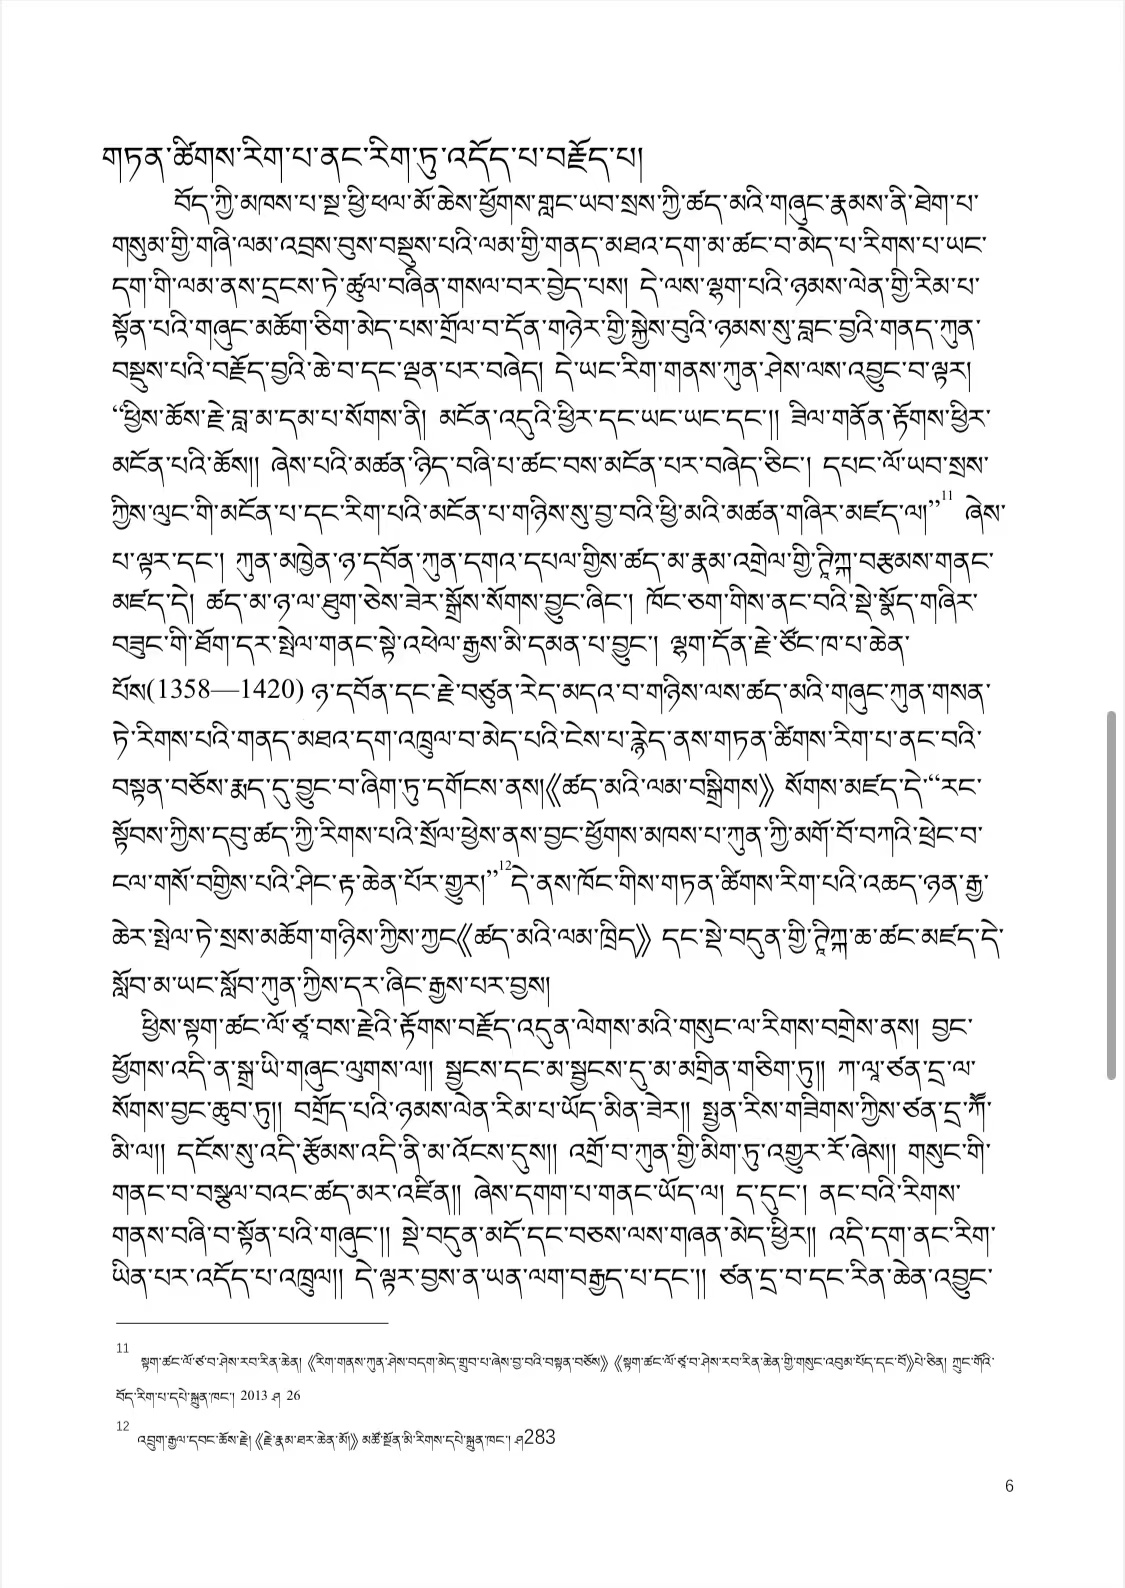 གཏན་ཚིགས་རིག་པ་ནང་རིག་ཏུ་འདོད་པ་བརྗོད་པ།
བོད་ཀྱི་མཁས་པ་སྔ་ཕྱི་ཕལ་མོ་ཆེས་ཕྱོགས་གླང་ཡབ་སྲས་ཀྱི་ཚད་མའི་གཞུང་རྣམས་ནི་ཐེག་པ་
གསུམ་གྱི་གཞི་ལམ་འབྲས་བུས་བསྡུས་པའི་ལམ་གྱི་གནད་མཐའ་དག་མ་ཚང་བ་མེད་པ་རིགས་པ་ཡང་
དག་གི་ལམ་ནས་དྲངས་ཏེ་ཚུལ་བཞིན་གསལ་བར་བྱེད་པས། དེ་ལས་ལྷག་པའི་ཉམས་ལེན་གྱི་རིམ་པ་
སྟོན་པའི་གཞུང་མཆོག་ཅིག་མེད་པས་གྲོལ་བ་དོན་གཉེར་གྱི་སྐྱེས་བུའི་ཉམས་སུ་བླང་བྱའི་གནད་ཀུན་
བསྡུས་པའི་བརྗོད་བྱའི་ཆེ་བ་དང་ལྡན་པར་བཞེད། དེ་ཡང་རིག་གནས་ཀུན་ཤེས་ལས་འབྱུང་བ་ལྟར།
“ཕྱིས་ཆོས་རྗེ་བླ་མ་དམ་པ་སོགས་ནི། མངོན་འདུའི་ཕྱིར་དང་ཡང་ཡང་དང་།། ཟིལ་གནོན་རྟོགས་ཕྱིར་
མངོན་པའི་ཆོས།། ཞེས་པའི་མཚན་ཉིད་བཞི་པ་ཚང་བས་མངོན་པར་བཞེད་ཅིང་། དཔང་ལོ་ཡབ་སྲས་
ཀྱིས་ལུང་གི་མངོན་པ་དང་རིག་པའི་མངོན་པ་གཉིས་སུ་བྱ་བའི་ཕྱི་མའི་མཚན་གཞིར་མཛད་ལ།”11 ཞེས་
པ་ལྟར་དང་། ཀུན་མཁྱེན་ཉ་དབོན་ཀུན་དགའ་དཔལ་གྱིས་ཚད་མ་རྣམ་འགྲེལ་གྱི་ཊཱིཀྐ་བརྩམས་གནང་
མཛད་དེ། ཚད་མ་ཉ་ལ་ཐུག་ཅེས་ཟེར་སྒྲོས་སོགས་བྱུང་ཞིང་། ཁོང་ཅག་གིས་ནང་བའི་སྡེ་སྣོད་གཞིར་
བཟུང་གི་ཐོག་དར་སྤེལ་གནང་སྟེ་འཕེལ་རྒྱས་མི་དམན་པ་བྱུང་། ལྷག་དོན་རྗེ་ཙོང་ཁ་པ་ཆེན་
པོས(1358—1420) ཉ་དབོན་དང་རྗེ་བཙུན་རེད་མདའ་བ་གཉིས་ལས་ཚད་མའི་གཞུང་ཀུན་གསན་
ཏེ་རིགས་པའི་གནད་མཐའ་དག་འཁྲུལ་བ་མེད་པའི་ངེས་པ་རྙེད་ནས་གཏན་ཚིགས་རིག་པ་ནང་བའི་
བསྟན་བཅོས་རྨད་དུ་བྱུང་བ་ཞིག་ཏུ་དགོངས་ནས།《ཚད་མའི་ལམ་བསྒྲིགས》 སོགས་མཛད་དེ་“རང་
སྟོབས་ཀྱིས་དབུ་ཚད་ཀྱི་རིགས་པའི་སྲོལ་ཕྱེས་ནས་བྱང་ཕྱོགས་མཁས་པ་ཀུན་ཀྱི་མགོ་བོ་བཀའི་ཕྲེང་བ་
ངལ་གསོ་བགྱིས་པའི་ཤིང་རྟ་ཆེན་པོར་གྱུར།”12དེ་ནས་ཁོང་གིས་གཏན་ཚིགས་རིག་པའི་འཆད་ཉན་རྒྱ་
ཆེར་སྤེལ་ཏེ་སྲས་མཆོག་གཉིས་ཀྱིས་ཀྱང《ཚད་མའི་ལམ་ཁྲིད》 དང་སྡེ་བདུན་གྱི་ཊཱིཀྐ་ཆ་ཚང་མཛད་དེ་
སློབ་མ་ཡང་སློབ་ཀུན་ཀྱིས་དར་ཞིང་རྒྱས་པར་བྱས།
ཕྱིས་སྟག་ཚང་ལོ་ཙཱ་བས་རྗེའི་རྟོགས་བརྗོད་འདུན་ལེགས་མའི་གསུང་ལ་རིགས་བགྲེས་ནས། བྱང་
ཕྱོགས་འདི་ན་སྒྲ་ཡི་གཞུང་ལུགས་ལ།། སྦྱངས་དང་མ་སྦྱངས་དུ་མ་མགྲིན་གཅིག་ཏུ།། ཀ་ལཱ་ཙན་དྲ་ལ་
སོགས་བྱང་ཆུབ་ཏུ།། བགྲོད་པའི་ཉམས་ལེན་རིམ་པ་ཡོད་མིན་ཟེར།། སྤྱན་རིས་གཟིགས་ཀྱིས་ཙན་དྲ་
མི་ལ།། དངོས་སུ་འདི་རྩོམས་འདི་ནི་མ་འོངས་དུས།། འགྲོ་བ་ཀུན་གྱི་མིག་ཏུ་འགྱུར་རོ་ཞེས།། གསུང་གི་
གནང་བ་བསྩལ་བའང་ཚད་མར་འཛིན།། ཞེས་དགག་པ་གནང་ཡོད་ལ། ད་དུང་། ནང་བའི་རིགས་
གནས་བཞི་བ་སྟོན་པའི་གཞུང་།། སྡེ་བདུན་མདོ་དང་བཅས་ལས་གཞན་མེད་ཕྱིར།། འདི་དག་ནང་རིག་
ཡིན་པར་འདོད་པ་འཁྲུལ།། དེ་ལྟར་བྱས་ན་ཡན་ལག་བརྒྱད་པ་དང་།། ཙན་དྲ་བ་དང་རིན་ཆེན་འབྱུང་
11 སྟག་ཚང་ལོ་ཙ་བ་ཤེས་རབ་རིན་ཆེན། 《རིག་གནས་ཀུན་ཤེས་བདག་མེད་གྲུབ་པ་ཞེས་བྱ་བའི་བསྟན་བཅོས》《སྟག་ཚང་ལོ་ཙཱ་བ་ཤེས་རབ་རིན་ཆེན་གྱི་གསུང་འབུམ་པོད་དང་བོ》པེ་ཅིན། ཀྲུང་གོའི་
བོད་རིག་པ་དཔེ་སྐྲུན་ཁང་། 2013 ཤ 26
12 འབྲུག་རྒྱལ་དབང་ཆོས་རྗེ། 《རྗེ་རྣམ་ཐར་ཆེན་མོ།》 མཚོ་སྔོན་མི་རིགས་དཔེ་སྐྲུན་ཁང་། ཤ283
6